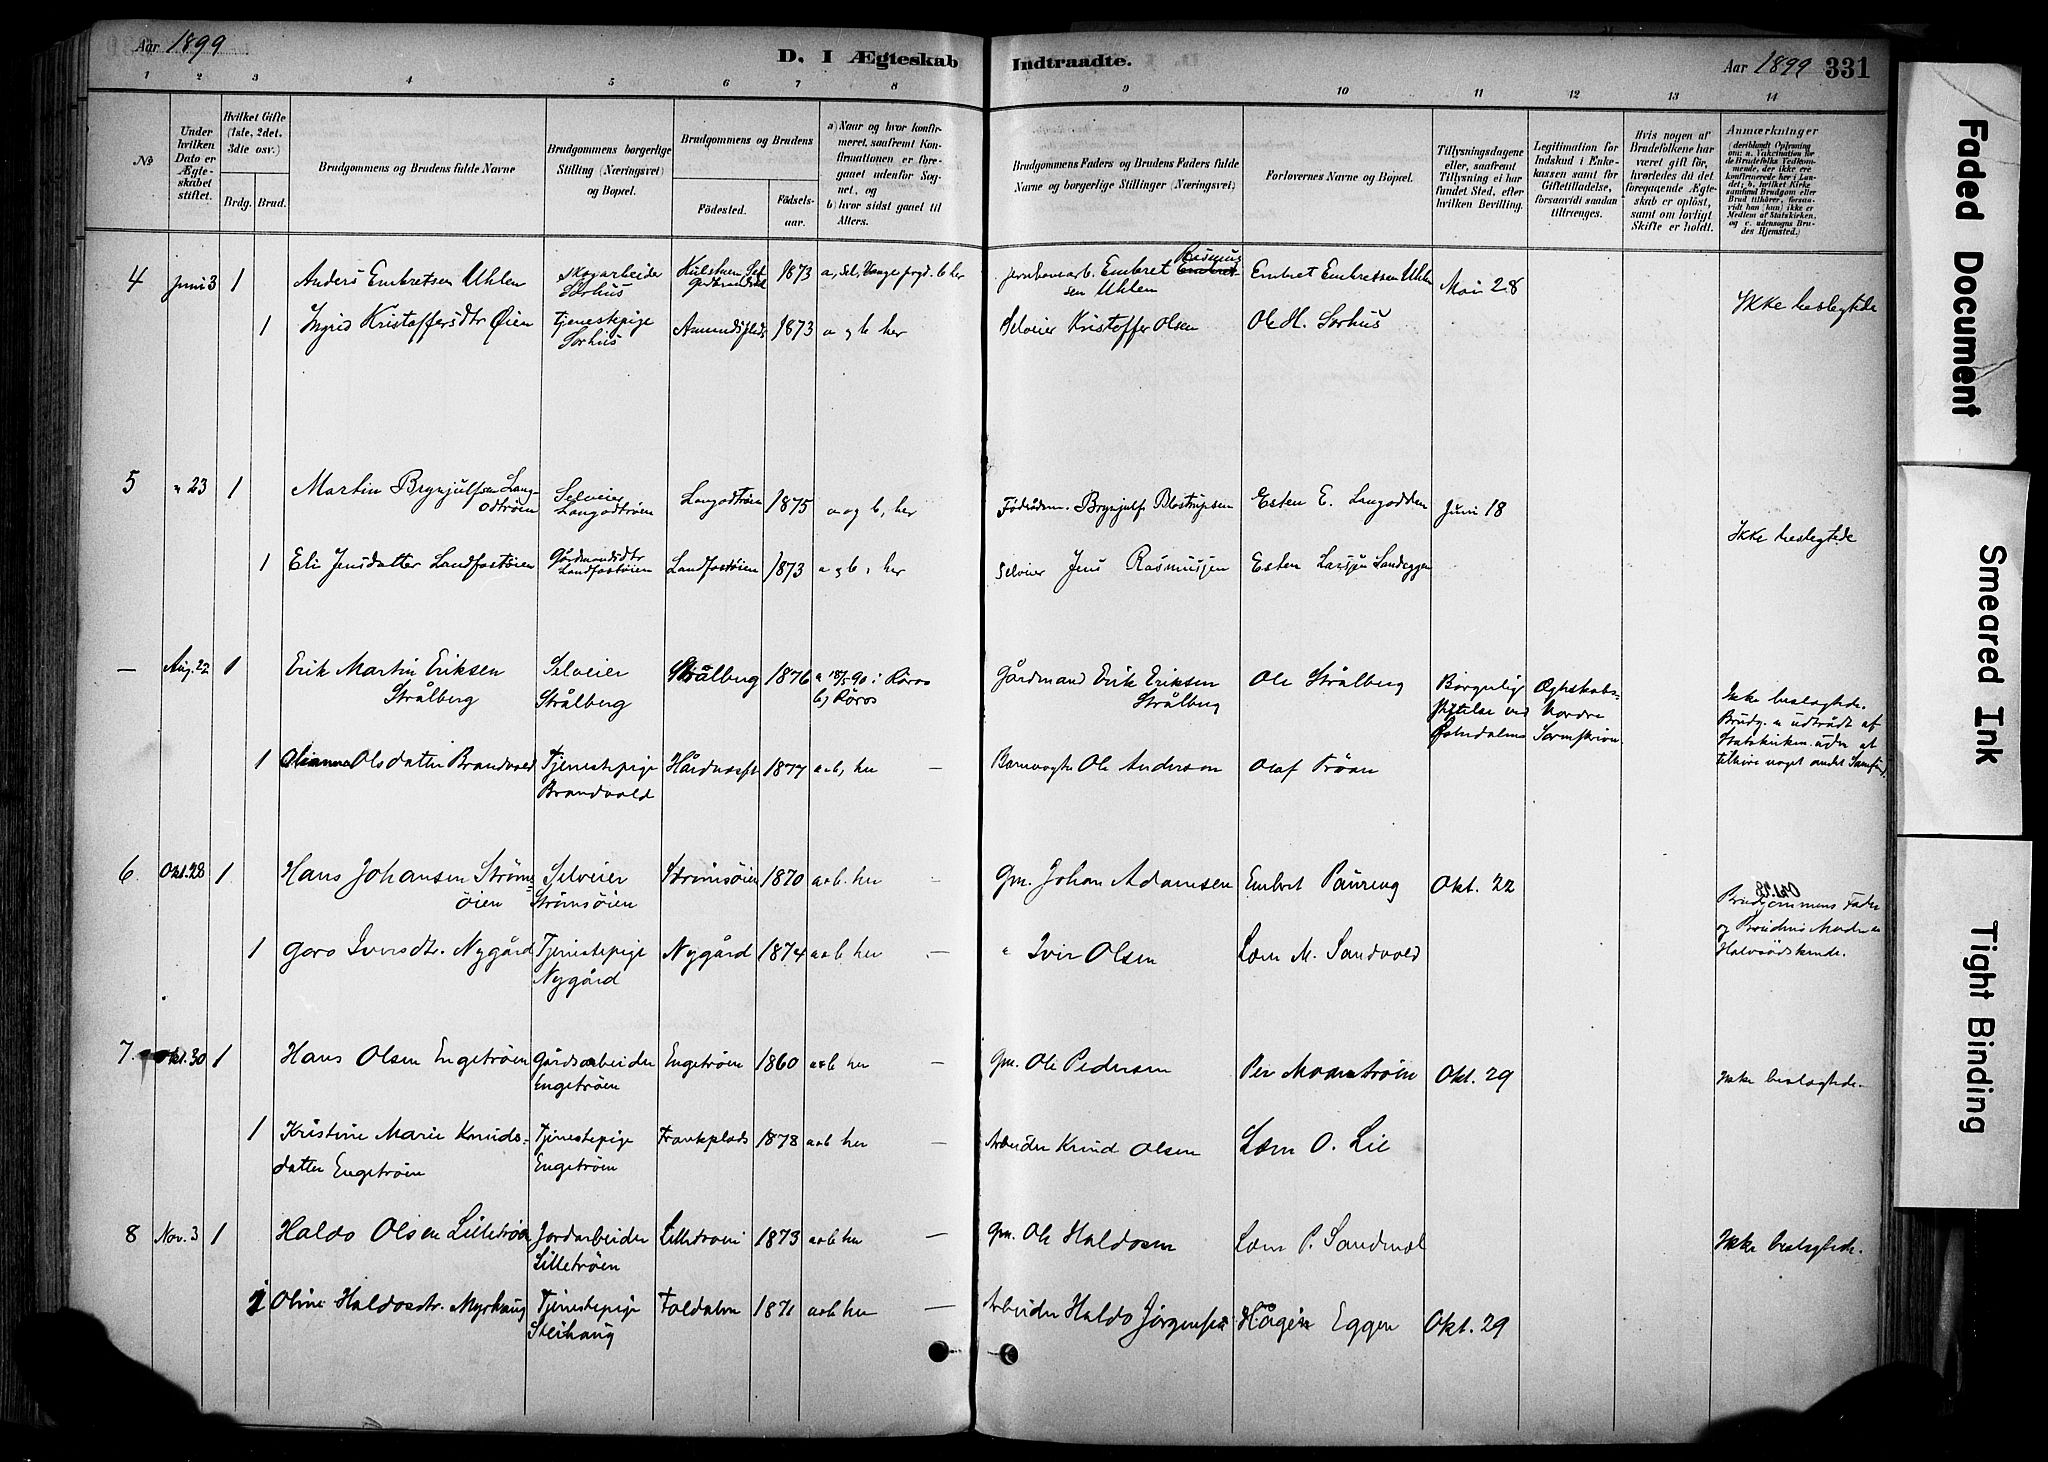 Aar 1899
D. I Ægteskab Indtraadte.
Aar 1899 331
1 2 3 4 5 6 7 8 9 10 11 12 13 14
No
Under hvilken Dato er Ægteskabet stiftet.
Hvilket Gifte (1ste, 2det. 3die osv.)
Brdg. Brud.
Brudgommens og Brudens fulde Navne
Brudgommens borgerlige Stilling (Næringsvei) og Bopæl.
Brudgommens og Brudens
Fødested. Fødselsaar.
a) Naar og hvor konfirmeret, saafremt Konfirmationen er foregaaet udenfor Sognet, og
b) hvor sidst gaaet til Alters.
Brudgommens Faders og Brudens Faders fulde Navne og borgerlige Stillinger (Næringsvei)
Forlovernes Navne og Bopæl.
Tillysningsdagene eller, saafremt Tillysning ei har fundet Sted, efter hvilken Bevilling.
Legitimation for Indskud i Enkekassen samt for Giftetilladelse, forsaavidt saadan tiltrænges.
Hvis nogen af Brudefolkene har været gift før, hvorledes da det foregaaende Ægteskab er opløst, samt om lovligt Skifte er holdt.
Anmærkninger (deriblandt Oplysning om: a. Vaktination for de Brudefolks Vedkommende, der ikke ere konfirmerede her i Landet; b. hvilket Kirkesamfund Brudgom eller Brud tilhører, forsaavidt han (hun) ikke er Medlem af Statskirken, og c. udensogns Brudes Hjemsted.)
4 Juni 3 1 Anders Embretsen Uhlen skogarbeide Sorhus 1873 Embret Rasmussen Uhlen Embret Embretsen Uhlen Mai 28 Ikke beslegtede
1 Ingrid Kristoffersdtr Øien Tjenestepige Sorhus 1873 a og b her Selveier Kristoffer Olsen Ole H. Sorhus
5 " 23 1 Martin Brynjulfsen Langodtrøen Selveier Langodtrøen Langodtrøen 1875 a og b, her Føderådsm. Brynjulf Esten E. Langodden Juni 18 Ikke beslegtede
1 Eli Jensdatter Landfastøien Gårdmandsdtr Landfastøien Landfastøien 1873 a og b, her Selveier Jens Rasmussen Esten Larssøn Sandeggen
— Aug. 22 1 Erik Martin Eriksen Strålberg Selveier Strålberg Strålberg 1876 b) Røros Gårdmand Erik Eriksen Strålberg Ole Strålberg Borgerlig Ægteskabsstiftelse ved Nordre Østerdalens Sorenskriver Ikke beslægtede. Brudg. er udtrådt af Statskirken uden at tilhøre noget andet Samfund
1 Olianna Olsdatter Brandvold Tjenestepige Brandvold 1877 a+b, her — Ole Anderson Olaf Trøan
6. Okt. 28 1 Hans Johansen Strømsøien Selveier Strømsøien Strømsøien 1870 a+b. her — Gm. Johan Adamsen Embret Paureng Okt. 22 Brudgommens Fader og Brudens Moder er Halvsødskende.
1 Goro Iversdtr. Nygård Tjenestepige Nygård Nygård 1874 a+b her — " Iver Olsen Lars M. Sandvold
7. Okt. 30 1 Hans Olsen Engetrøen Gårdsarbeider Engetrøen Engetrøen 1860 a+b her — Gm. Ole Pedersen Per Moanstrøen Okt. 29 Ikke beslægtede.
1 Kristine Marie Knudsdatter Engetrøen Tjenestepige Engetrøen 1878 a+b her — Arbeider Knud Olsen Lars O. Lie
8 Nov. 3 1 Haldo Olsen Lilletrøen Jordarbeider Lilletrøen Lilletrøen 1873 a+b her — Gm. Ole Haldosen Lars P. Ikke beslægtede.
1 Oline Haldosdtr. Myrhaug Tjenestepige Steihaug Foldalen 1871 a+b her — Arbeider Haldo Jørgensen Hågen Eggen Okt. 29
Faded Document
Smeared Ink
Tight Binding